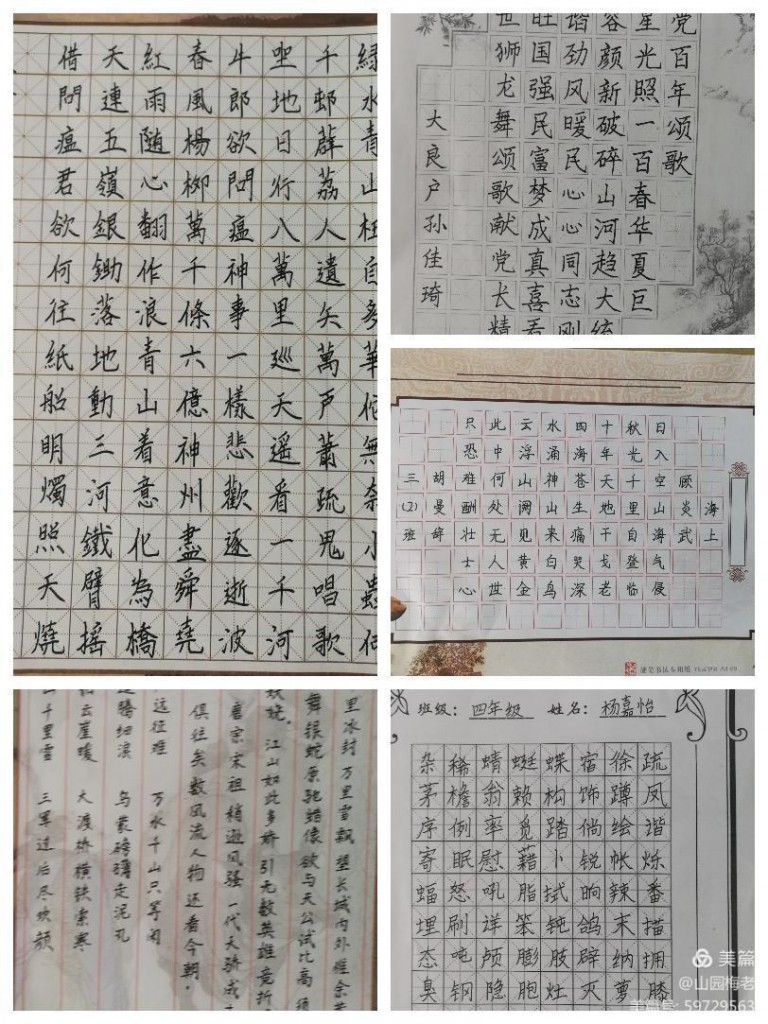 綠水青山枉自多華佗無奈小蟲何
千邨薜荔人遺矢萬戶蕭疏鬼唱歌
坐地日行八萬里巡天遥看一千河
牛郎欲問瘟神事一樣悲歡逐逝波
春風楊柳萬千條六億神州盡舜堯
紅雨随心翻作浪青山着意化為橋
天連五嶺銀鋤落地動三河鐵臂摇
借問瘟君欲何往紙船明燭照天燒
党百年颂歌
星光照一百春华夏巨
容颜新破碎山河趋大统
谐劲风暖民心心同志刚
旺国强民富梦成真喜看
世狮龙舞颂歌献党长精
大良户孙佳琦
海上
顾炎武
日入空山海气侵
秋光千里自登临
十年天地干戈老
四海苍生痛哭深
水涌神山来白鸟
云浮山阙见黄金
此中何处无人世
只恐难酬壮士心
胡曼辞
三(2)班
硬笔书法专用纸
里冰封 万里雪飘 望长城内外 惟余
舞银蛇 原驰蜡像 欲与天公试比高 须
妖娆。江山如此多娇 引无数英雄竞折
唐宗宋祖 稍逊风骚 一代天骄成
俱往矣 数风流人物 还看今朝。
远征难 万水千山只等闲
腾细浪 乌蒙磅礴走泥丸
云崖暖 大渡桥横铁索寒
千里雪 三军过后尽欢颜
班级：四年级 姓名：杨嘉怡
杂稀蜻蜓蝶宿徐疏
茅檐翁赖构饰蹲凤
序例率觅踏倘绘谐
寄眠慰藉卜锐帐烁
蝠怒吼脂拭晌辣番
埋刷详笨钝鸽末描
态吨颅膨肢辟纳拥
臭钢隐胞灶灭萝膝
美篇
@山园梅老
美篇号: 59729563